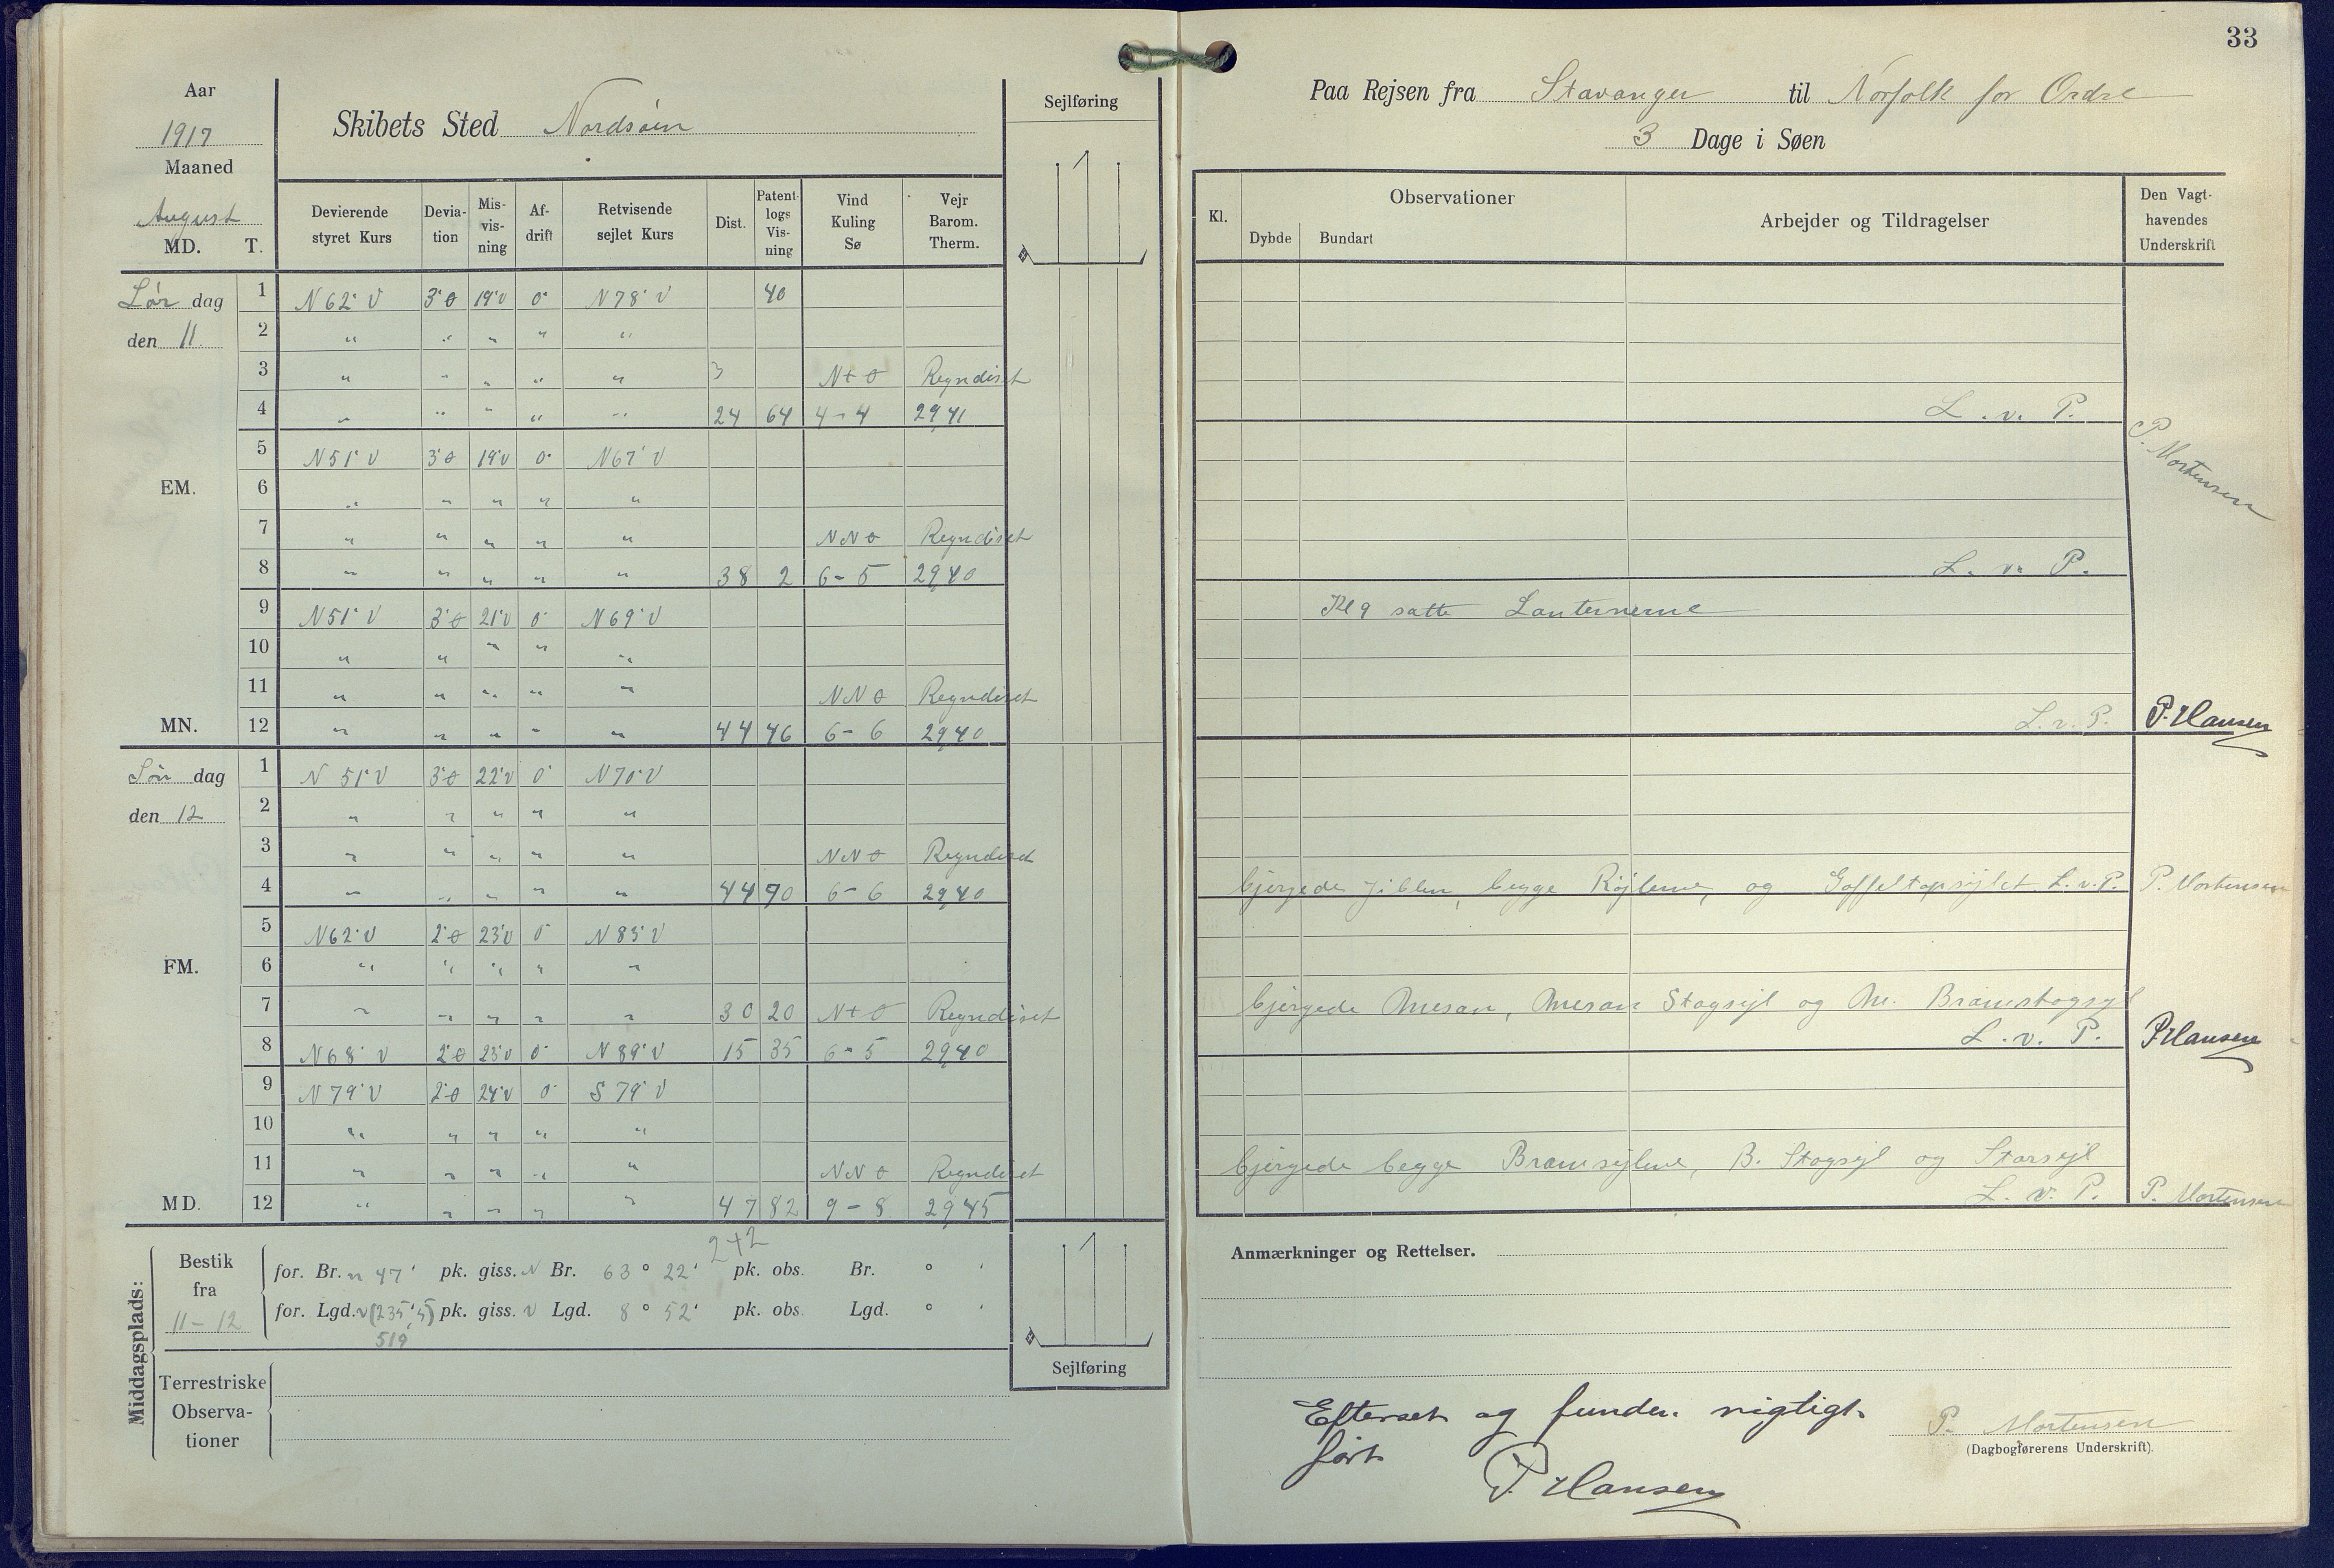 33
Aar
1917
Maaned
August
MD. T.
Skibets Sted Nordsöen
Sejlføring
Paa Rejsen fra Stavanger til Norfolk for Ordre
3 Dage i Søen
Devierende styret Kurs | Devia-tion | Mis-vis-ning | Af-drift | Retvisende sejlet Kurs | Dist. | Patent-logs Vis-ning | Vind Kuling Sø | Vejr Barom. Therm.
Kl. | Observationer | Dybde | Bundart | Arbejder og Tildragelser | Den Vagt-havendes Underskrift
Lör dag 1 N 62° V 3° Ø 19° V 0° N 78° V 40
den 11. 2 " " " " "
3 " " " " " 3 NtØ Regndiset
4 " " " " " 24 64 4-4 29,41 L. v. P. P. Mortensen
5 N 51° V 3° Ø 19° V 0° N 67° V
EM. 6 " " " " "
7 " " " " " NNØ Regndiset
8 " " " " " 38 2 6-5 29,40 L. v. P.
9 N 51° V 3° Ø 21° V 0° N 69° V Kl 9 satte Lanternerne
10 " " " " "
11 " " " " " NNØ Regndiset
MN. 12 " " " " " 44 46 6-6 29,40 L. v. P. P. Hansen
Sön dag 1 N 51° V 3° Ø 22° V 0° N 70° V
den 12 2 " " " " "
3 " " " " " NNØ Regndiset
4 " " " " " 44 90 6-6 29,40 bjergede Jibben, begge Röjlerne, og Gaffeltopsejlet L. v. P. P. Mortensen
5 N 62° V 2° Ø 23° V 0° N 83° V
FM. 6 " " " " "
7 " " " " " 30 20 NtØ Regndiset bjergede Mesan, Mesan Stagsejl og M. Bramstagsejl
8 N 68° V 2° Ø 23° V 0° N 89° V 15 35 6-5 29,40 L. v. P. P Hansen
9 N 79° V 2° Ø 24° V 0° S 79° V
10 " " " " "
11 " " " " " NNØ Regndiset bjergede begge Bramsejlene, B. Stagsejl og Storsejl
MD. 12 " " " " " 47 82 9-8 29,45 L. v. P. P. Mortensen
242
Middagsplads:
Bestik fra 11-12
for. Br. n 47' pk. giss. N Br. 63° 22' pk. obs. Br. ° '
for. Lgd. v (235',5) pk. giss. V Lgd. 8° 52' pk. obs. Lgd. ° '
519
Sejlføring
Terrestriske Observa-tioner
Anmærkninger og Rettelser.
Efterset og funden rigtigt
fört
P. Hansen
P. Mortensen
(Dagbogførerens Underskrift).